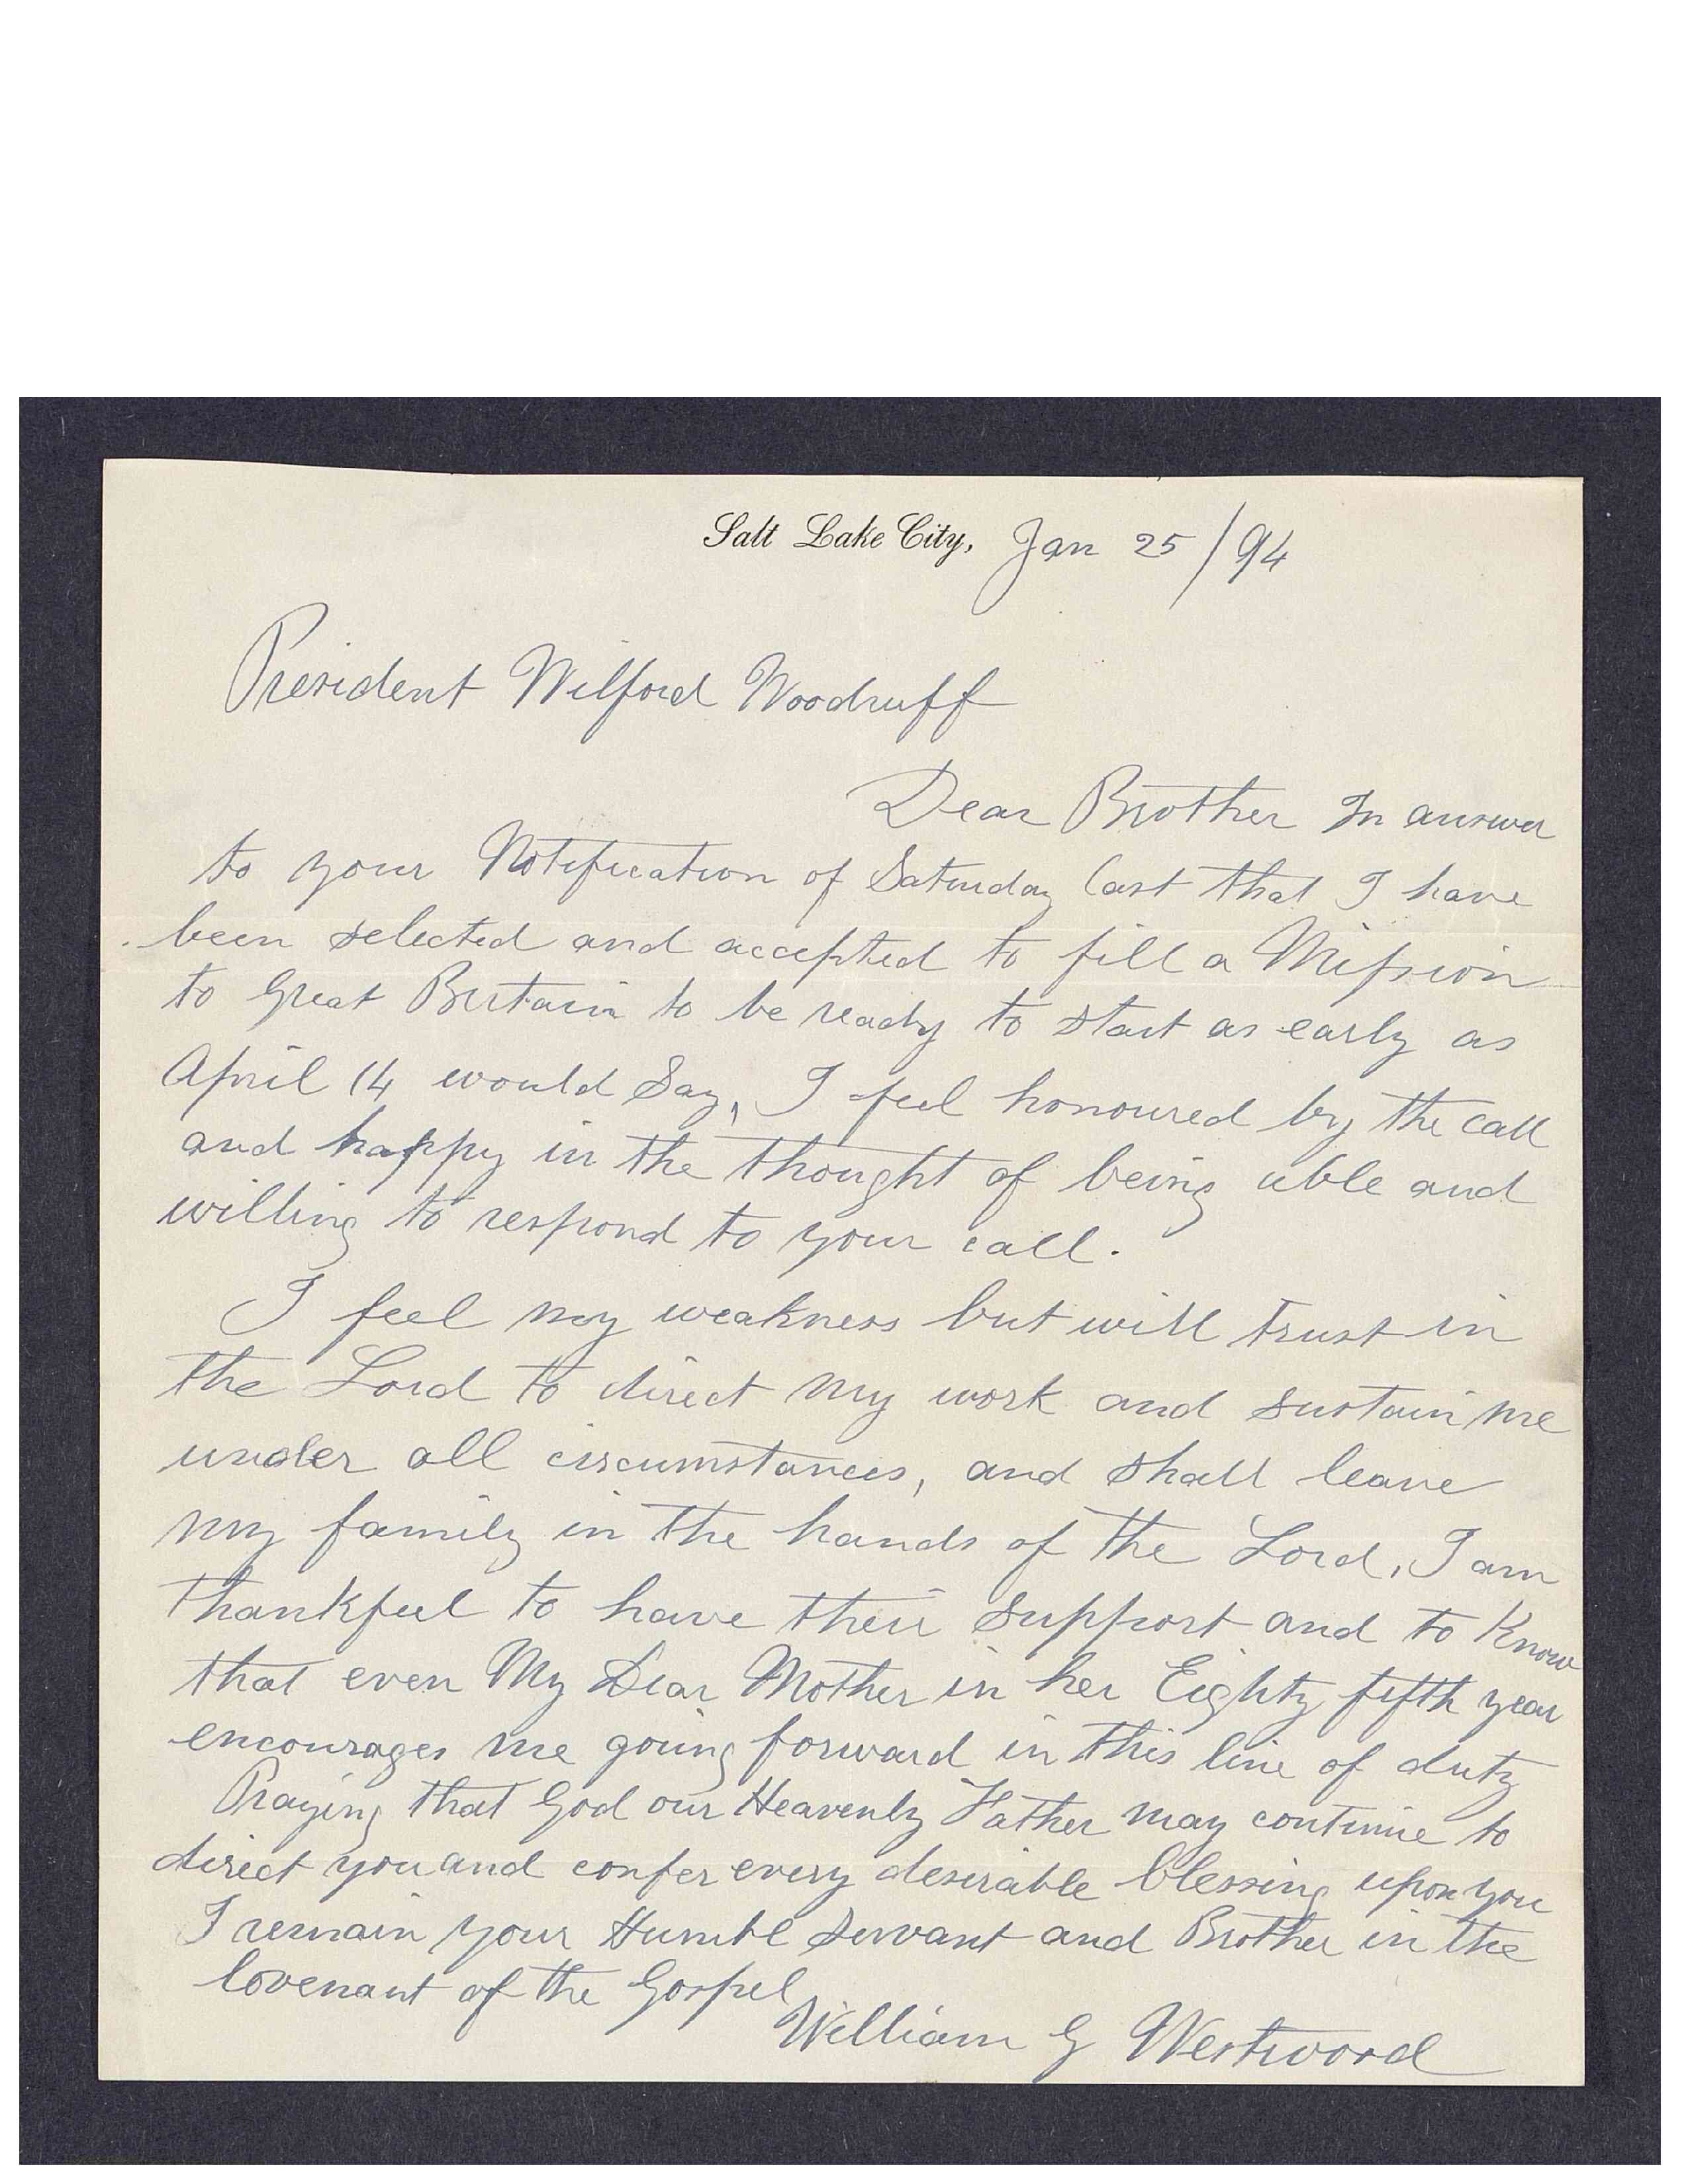 Salt Lake City, Jan 25/94
President Wilford Woodruff
Dear Brother In answer
to your Notification of Saturday last that I have
been selected and accepted to fill a Mission
to Great Britain to be ready to start as early as
April 14 would Say, I feel honoured by the call
and happy in the thought of being able and
willing to respond to your call.
I feel my weakness but will trust in
the Lord to direct my work and sustain me
under all circumstances, and shall leave
my family in the hands of the Lord, I am
thankful to have their support and to Know
that even My Dear Mother in her Eighty fifth year
encourages me going forward in this line of duty
Praying that God our Heavenly Father may continue to
direct you and confer every desirable blessing upon you
I remain your Humble Servant and Brother in the
Covenant of the Gospel
William G Westwood